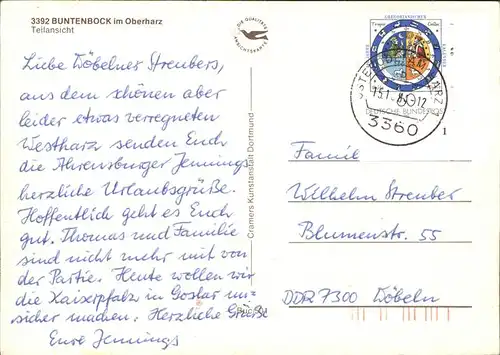 3392 BUNTENBOCK im Oberharz
Teilansicht
DIE QUALITÄTS
ANSICHTSKARTE
Liebe Döbelner Streubers,
aus dem schönen aber
leider etwas verregneten
Westharz senden Euch
die Ahrensburger Jennings
herzliche Urlaubsgrüße.
Hoffentlich geht es Euch
gut. Thomas und Familie
sind nicht mehr mit von
der Partie. Heute wollen wir
die Kaiserpfalz in Goslar un-
sicher machen. Herzliche Grüße
Eure Jennings
Cramers Kunstanstalt Dortmund
GREGORIANISCHER
HARZ
3360
DEUTSCHE BUNDESPOST
1
Familie
Wilhelm Streuber
Blumenstr. 55
DDR 7300 Döbeln